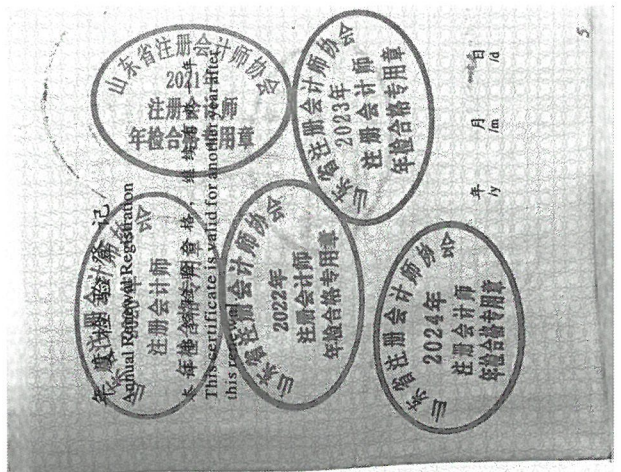 年度检验登记
Annual Renewal Registration
本证书经检验合格，继续有效一年。
This certificate is valid for another year after
this renewal.
山东省注册会计师协会
注册会计师
年检合格专用章
山东省注册会计师协会
2021年
注册会计师
年检合格专用章
山东省注册会计师协会
2022年
注册会计师
年检合格专用章
山东省注册会计师协会
2023年
注册会计师
年检合格专用章
山东省注册会计师协会
2024年
注册会计师
年检合格专用章
年 月 日
/y /m /d
5